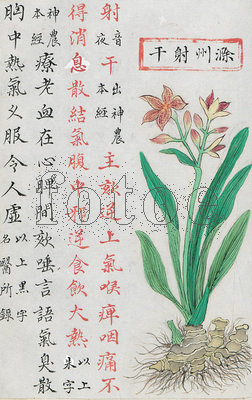 滁州射干
射音夜干出神農本經主欬逆上氣喉痹咽痛不
得消息散結氣腹中邪逆食飲大熱以上朱字
神農本經療老血在心脾間欬唾言語氣臭散
胸中熱氣久服令人虛以上黑字名醫所錄
fotoe